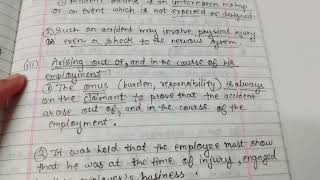 1) Accident means is an unforeseen mishap
or an event which is not expected or designed.
2) Such an accident may involve physical injury
or even a shock to the nervous system
(iii) Arising out of, and in the course of his
employment :
① The onus (burden, responsibility) is always
on the claimant to prove that the accident
arose out of, and in the course of the
employment.
② It was held that the employee must show
that he was at the time of injury, engaged
employer's business.